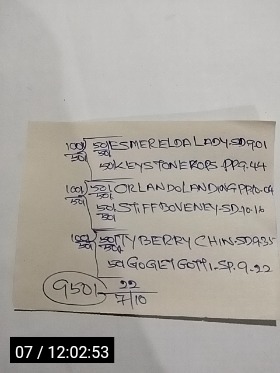 100/ 50/ ESMERELDA LADY-SD9.01
50/ 50/
50/ KEYSTONEROPS-PP9.44
100/ 50/ ORLANDOLANDINGPP10-04
50/ 50/ STIFFBOVENEY-SD.10.16
50/
100/ 50/ TTYBERRYCHIN-SD9.35
50/
50/ GOGIEYGOTTI.SP.9-22
9501 22
7/10
07 / 12:02:53